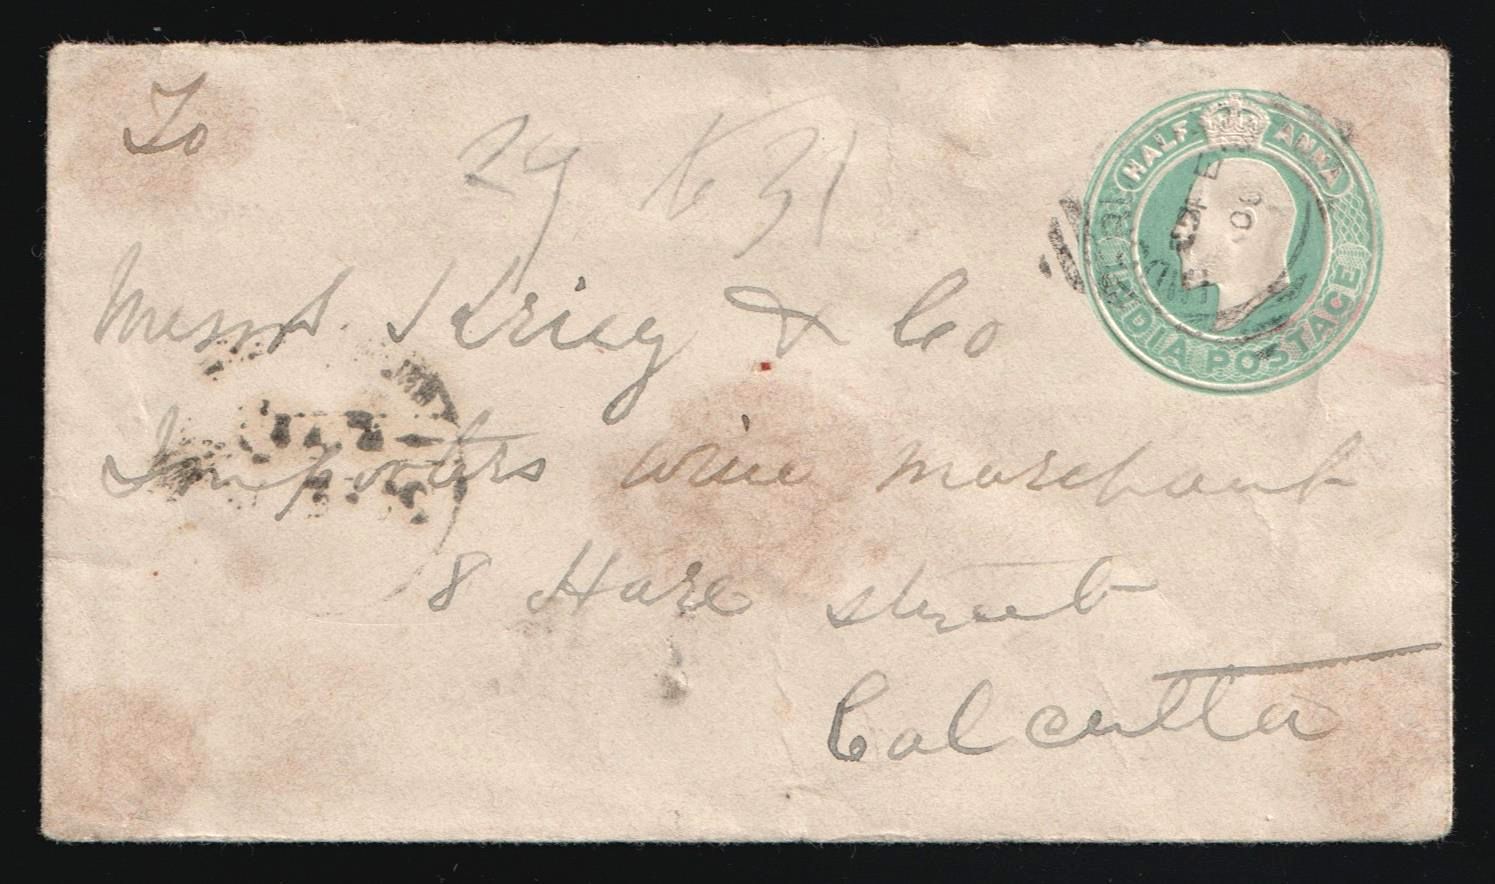 To
HALF ANNA
INDIA POSTAGE
29 31
Messrs. Kriey & Co
Importers wine merchant
8 Hare street
Calcutta